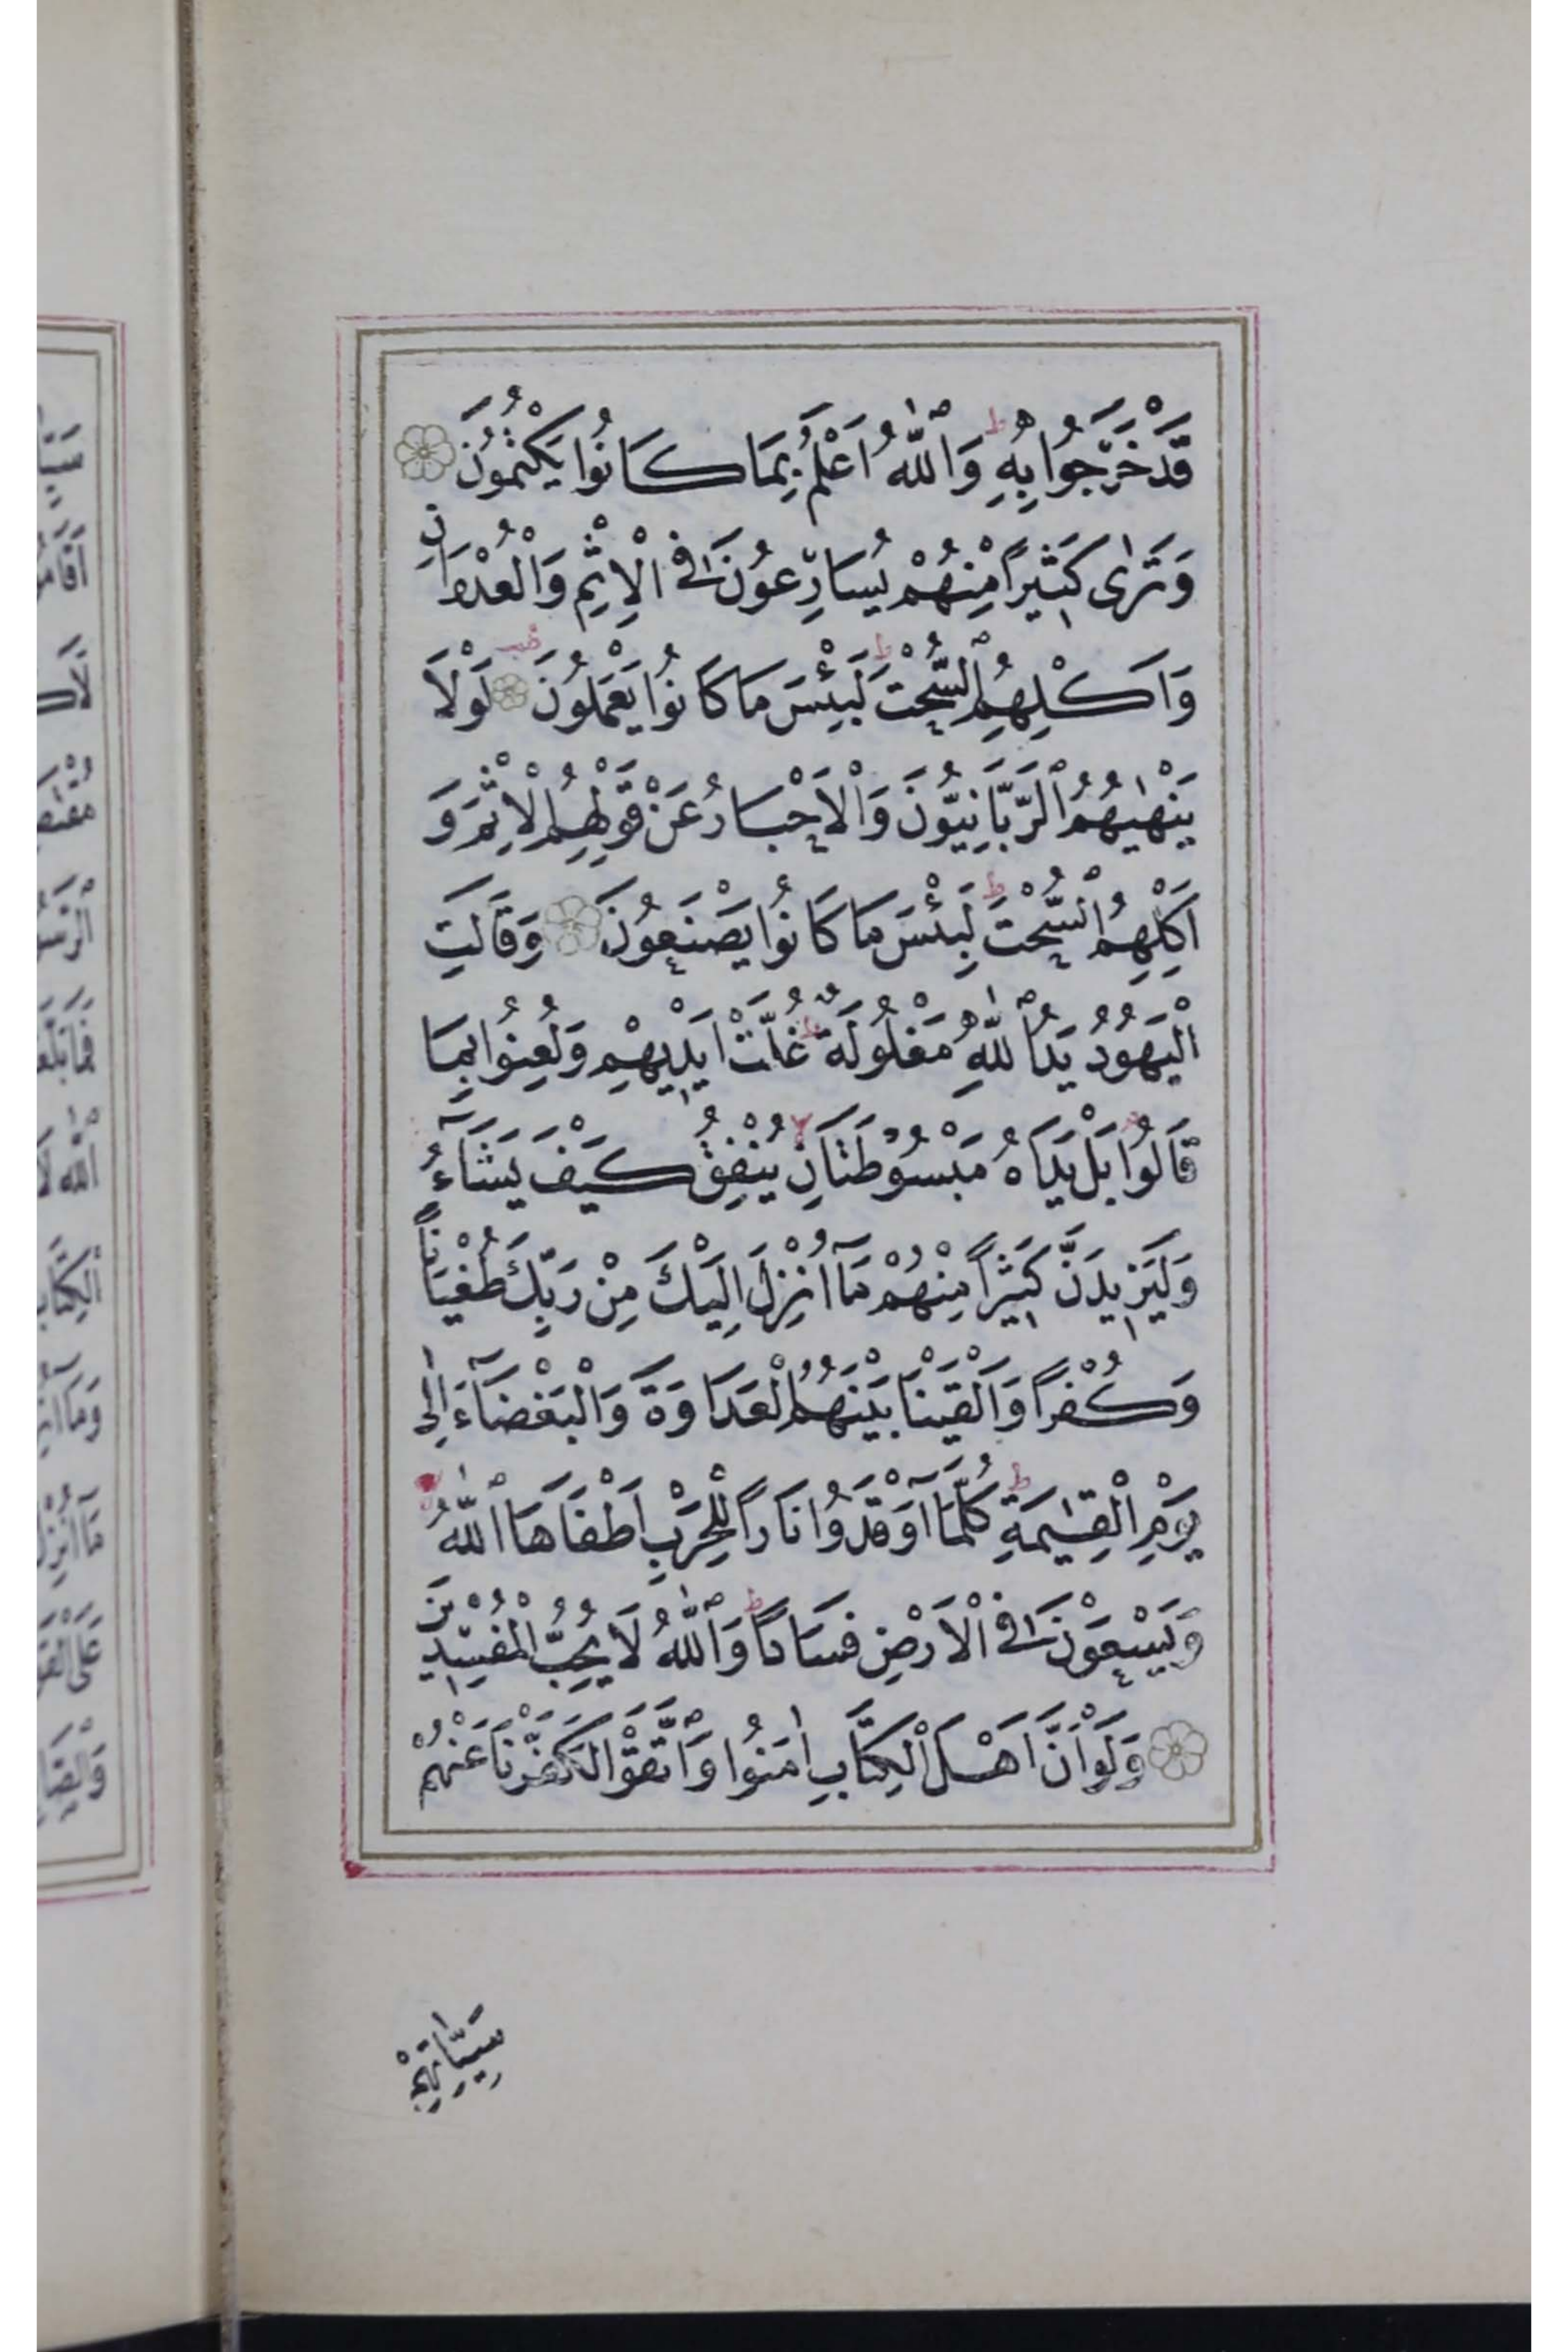 قَدْ خَرَجُوا بِهِ ط وَاللّٰهُ اَعْلَمُ بِمَا كَانُوا يَكْتُمُونَ
وَتَرٰى كَثِيرًا مِنْهُمْ يُسَارِعُونَ فِى الْاِثْمِ وَالْعُدْوَانِ
وَاَكْلِهِمُ السُّحْتَ ط لَبِئْسَ مَا كَانُوا يَعْمَلُونَ لَوْلَا
يَنْهٰيهُمُ الرَّبَّانِيُّونَ وَالْاَحْبَارُ عَنْ قَوْلِهِمُ الْاِثْمَ وَ
اَكْلِهِمُ السُّحْتَ ط لَبِئْسَ مَا كَانُوا يَصْنَعُونَ وَقَالَتِ
الْيَهُودُ يَدُ اللّٰهِ مَغْلُولَةٌ ط غُلَّتْ اَيْدِيهِمْ وَلُعِنُوا بِمَا
قَالُوا بَلْ يَدَاهُ مَبْسُوطَتَانِ لا يُنْفِقُ كَيْفَ يَشَٓاءُ
وَلَيَزِيدَنَّ كَثِيرًا مِنْهُمْ مَٓا اُنْزِلَ اِلَيْكَ مِنْ رَبِّكَ طُغْيَانًا
وَكُفْرًا وَاَلْقَيْنَا بَيْنَهُمُ الْعَدَاوَةَ وَالْبَغْضَٓاءَ اِلٰى
يَوْمِ الْقِيٰمَةِ ط كُلَّمَٓا اَوْقَدُوا نَارًا لِلْحَرْبِ اَطْفَاَهَا اللّٰهُ
وَيَسْعَوْنَ فِى الْاَرْضِ فَسَادًا ط وَاللّٰهُ لَا يُحِبُّ الْمُفْسِدِينَ
وَلَوْ اَنَّ اَهْلَ الْكِتَابِ اٰمَنُوا وَاتَّقَوْا لَكَفَّرْنَا عَنْهُمْ
سَيِّاٰتِهِمْ